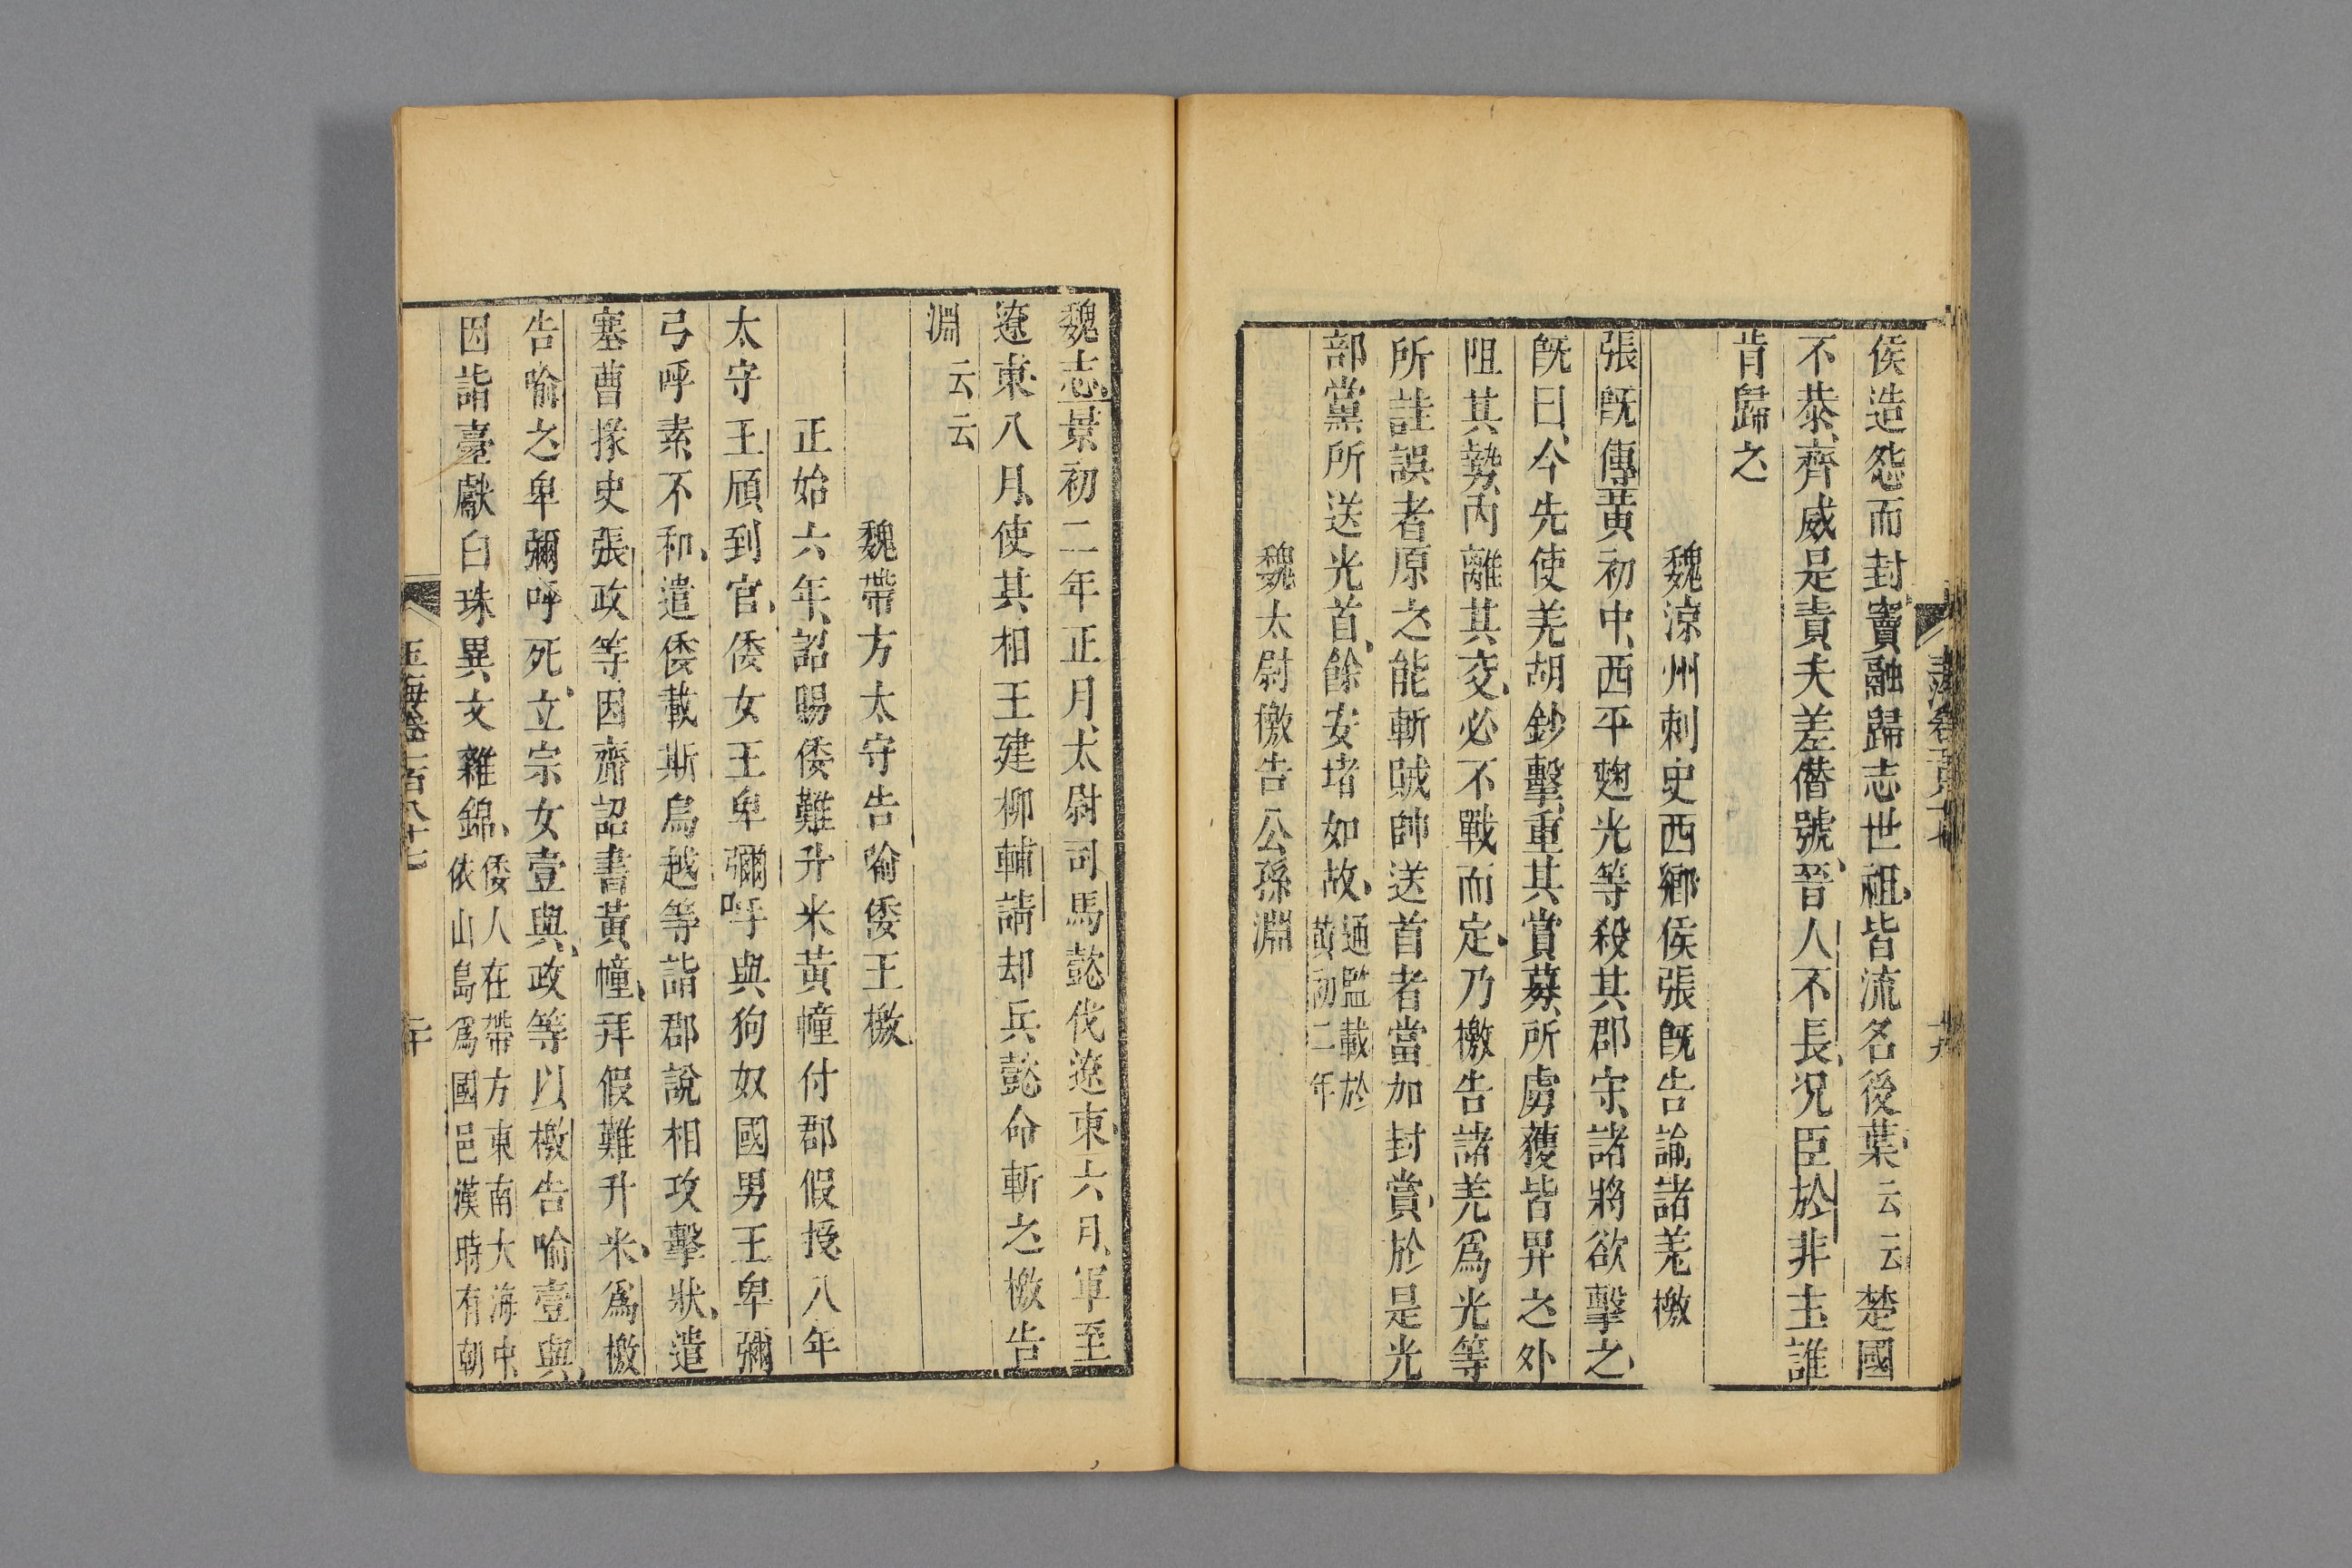 侯造怨而封竇融歸志世祖皆流名後葉云云楚國
不恭齊威是責夫差僭號晉人不長况臣於非主誰
肯歸之
魏涼州刺史西鄉侯張旣告諭諸羌檄
張旣傳黃初中西平麴光等殺其郡守諸將欲擊之
旣曰今先使羌胡鈔擊重其賞募所虜獲皆畀之外
阻其勢內離其交必不戰而定乃檄告諸羌爲光等
所詿誤者原之能斬賊帥送首者當加封賞於是光
部黨所送光首餘安堵如故通鑑載於
黃初二年
魏太尉檄告公孫淵
魏志景初二年正月太尉司馬懿伐遼東六月軍至
遼東八月使其相王建柳輔請却兵懿命斬之檄告
淵云云
魏帶方太守告喻倭王檄
正始六年詔賜倭難升米黃幢付郡假授八年
太守王頎到官倭女王卑彌呼與狗奴國男王卑彌
弓呼素不和遣倭載斯烏越等詣郡說相攻擊狀遣
塞曹掾史張政等因齎詔書黃幢拜假難升米爲檄
告喻之卑彌呼死立宗女壹與政等以檄告喻壹與
因詣臺獻白珠異文雜錦倭人在帶方東南大海中
依山島爲國邑漢時有朝
玉海卷一百八十七
二十